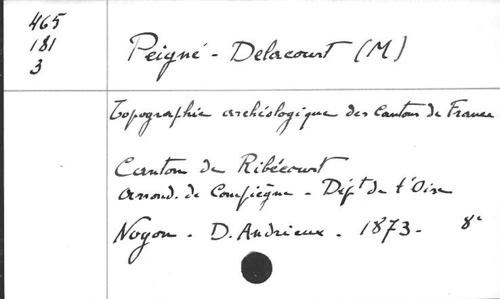 465
181
3
Peigné - Delacourt (M)
Topographie archéologique des Cantons de France
Canton de Ribécourt
arrond. de Compiègne - Dépt de l'Oise
Noyon - D. Andrieux - 1873 - 8°